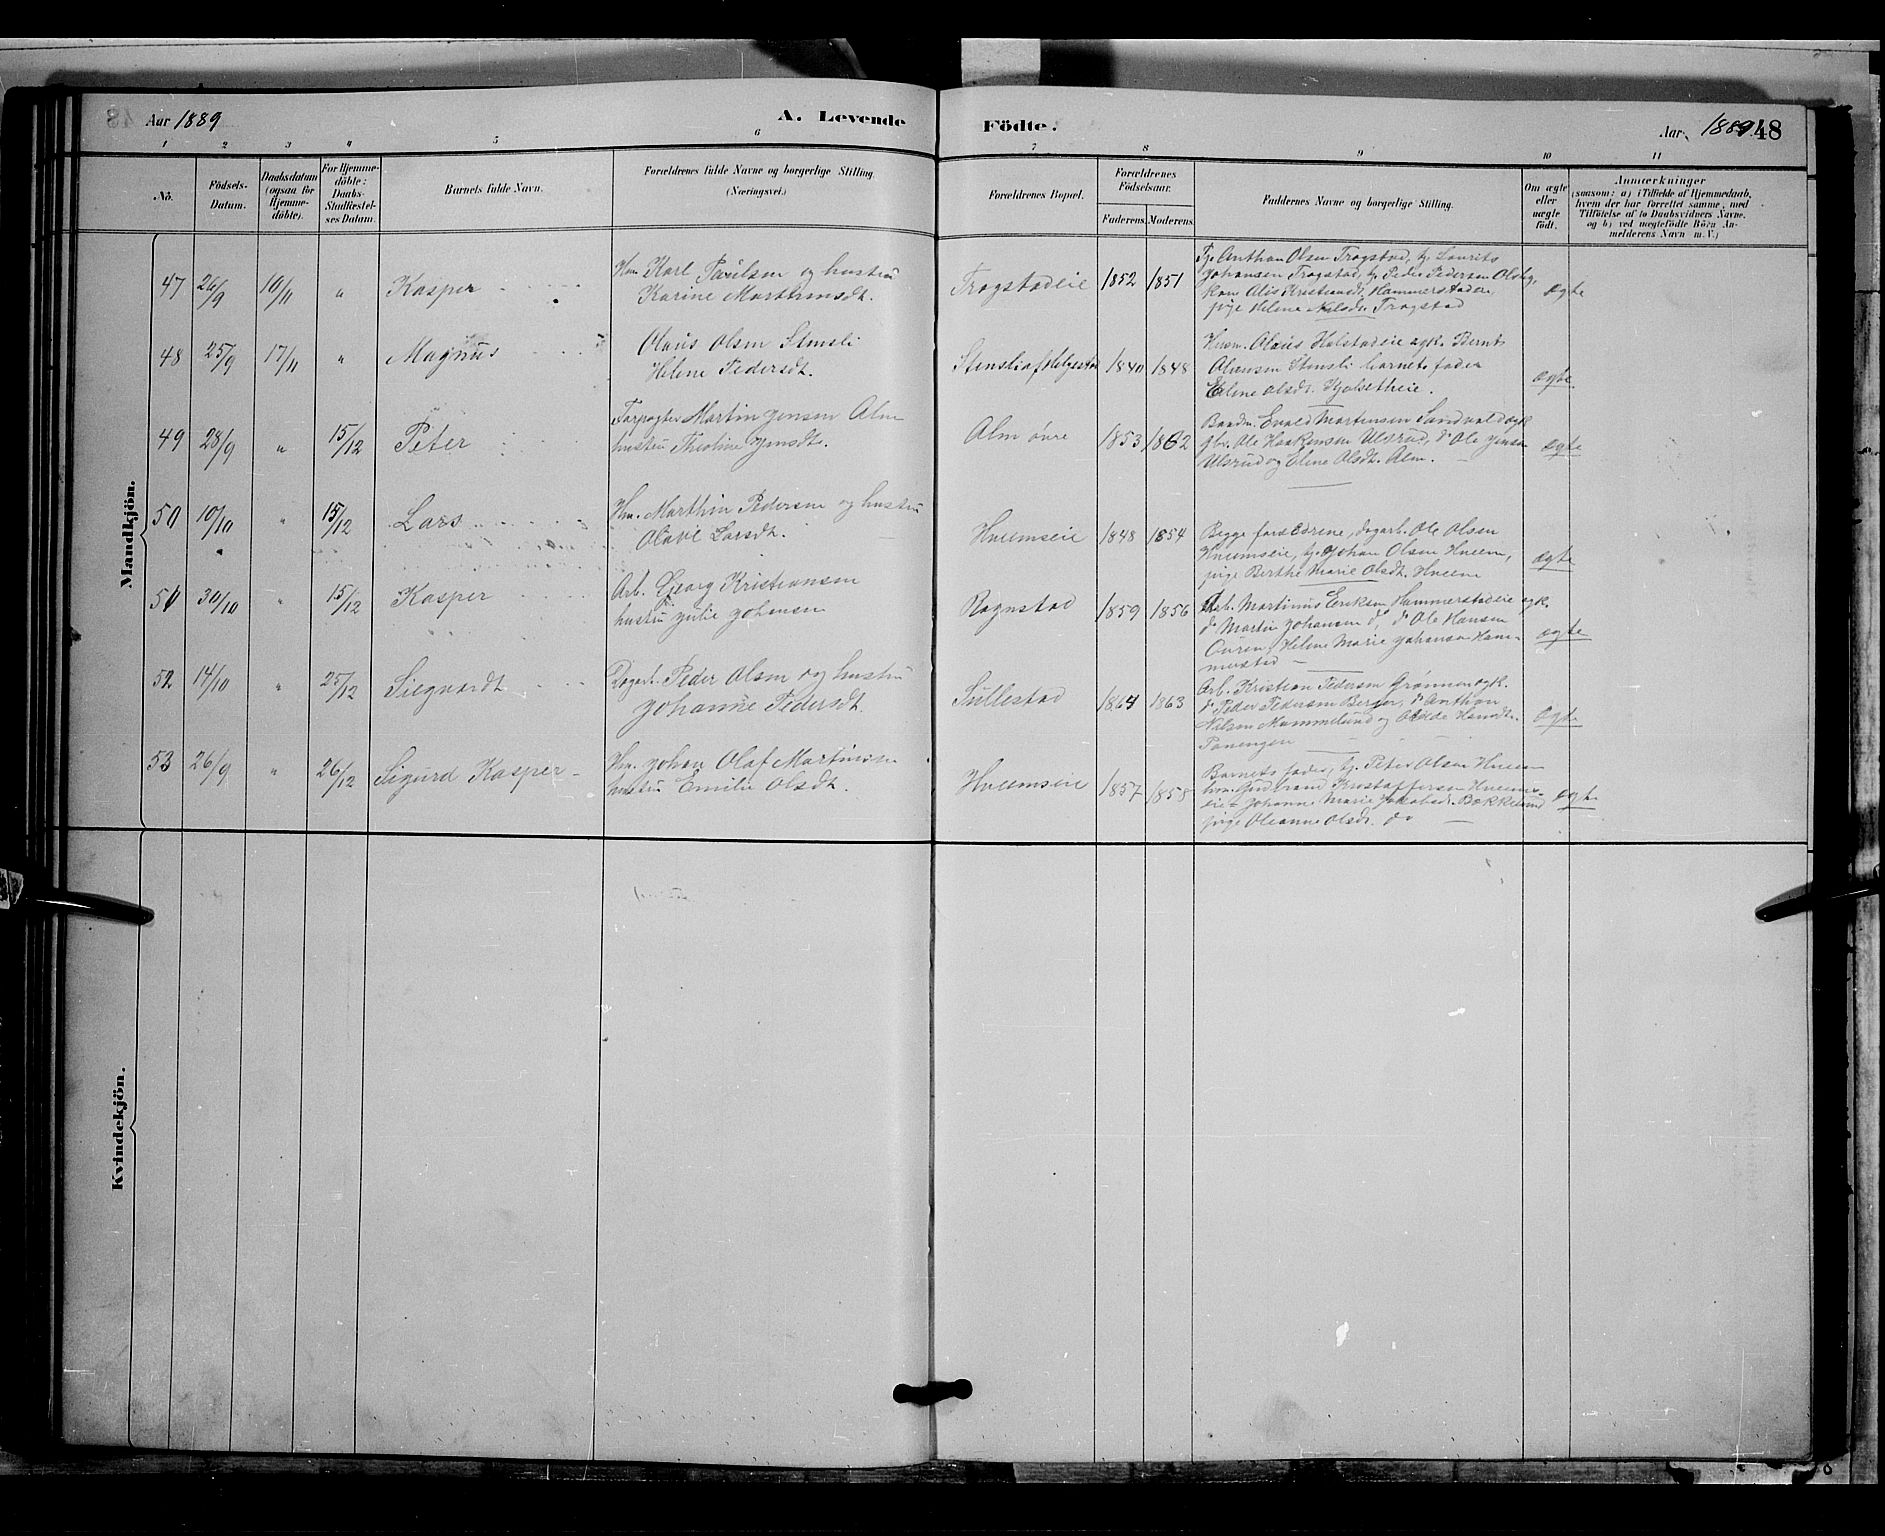 Aar 1889
A. Levende
Födte.
Aar 1889
48
1 2 3 4 5 6 7 8 9 10 11
No.
Födsels-
Datum.
Daabsdatum
(ogsaa for
Hjemme-
döbte).
For Hjemme-
döbte:
Daabs-
Stadfæstel-
ses Datum.
Barnets fulde Navn.
Forældrenes fulde Navne og borgerlige Stilling.
(Næringsvei.)
Forældrenes Bopæl.
Forældrenes
Födselsaar.
Faderens. Moderens.
Faddernes Navne og borgerlige Stilling.
Om ægte
eller
uægte
födt.
Anmærkninger
(saasom: a) i Tilfælde af Hjemmedaab,
hvem der har forrettet samme, med
Tilföielse af to Daabsvidners Navne.
og b) ved uægtefödte Börn An-
melderens Navn m. V.)
Mandkjön.
47 26/9 10/11 " Kasper
Hm. Karl Paulsen og hustru
Karine Marthinsdt.
Trogstadeie 1852 1851
Anthon Olsen Trogstad, Laurits
Johansen Trogstad, Peder Pedersen
Kristiansdt. Hammerstadeie,
pige Helene Nilsdt. Trogstad
ægte
48 25/9 17/11 " Magnus
Olaus Olsen Stensli
Helene Pedersdt.
Stensli af Helgestad 1840 1848
Husm. Olaus Halstadeie ogk. Bernt
Olausen Stensli barnets fader
Eline Olsdt. Hjolsetheie.
ægte
49 28/9 " 15/12 Peter
Forpagter Martin Jensen Alm
hustru Theoline Jensdt.
Alm övre 1853 1862
Evald Martensen Sandvold ogk
Gbr. Ole Haakensen Ulsrud, do Ole Jensen
Ulsrud og Eline Olsdt. Alm.
ægte
50 10/10 " 15/12 Lars
Hm. Marthin Pedersen og hustru
Olave Larsdt.
Hveemseie 1848 1854
Begge forældrene, dagarb. Ole Olsen
Hveemseie, Johan Olsen Hveem,
pige Berthe Marie Olsdt. Hveem
ægte
51 30/10 " 15/12 Kasper
Arb. Georg Kristiansen
hustru Julie Johansen
Rognstad 1859 1856
Arb. Martinus Eriksen Hammerstadeie ogk.
do Martin Johansen do, do Ole Hansen
Ouren, Helene Marie Johansen Ham-
merstad
ægte
52 14/10 " 25/12 Siegvardt
Dagarb. Peder Olsen og hustru
Johanne Pedersdt.
Sullestad 1864 1863
Arb. Kristian Pedersen Grönnen ogk.
do Peder Pedersen Berger, do Anthon
Nilsen Mummelund og Hansdt.
ægte
53 26/9 " 26/12 Sigurd Kasper
Hm. Johan Olaf Martinsen
hustru Emilie Olsdt.
Hveemseie 1857 1855
Barnets fader, Peter Olsen Hveem
hm. Gudbrand Kristoffersen Hveems-
eie Johanne Marie Jakobsdt. Bakkelund
pige Oleanne Olsdt. do
ægte
Kvindekjön.